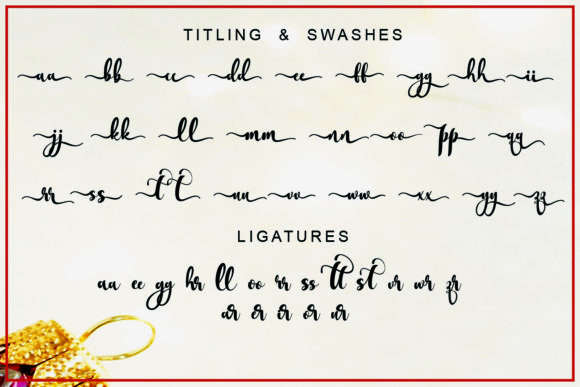 TITLING & SWASHES
aa bb cc dd ee ff gg hh ii
jj kk ll mm nn oo pp qq
rr ss tt uu vv ww xx yy zz
LIGATURES
aa ee gg hr ll oo rr ss tt st vr wr zr
ar er ir or ur